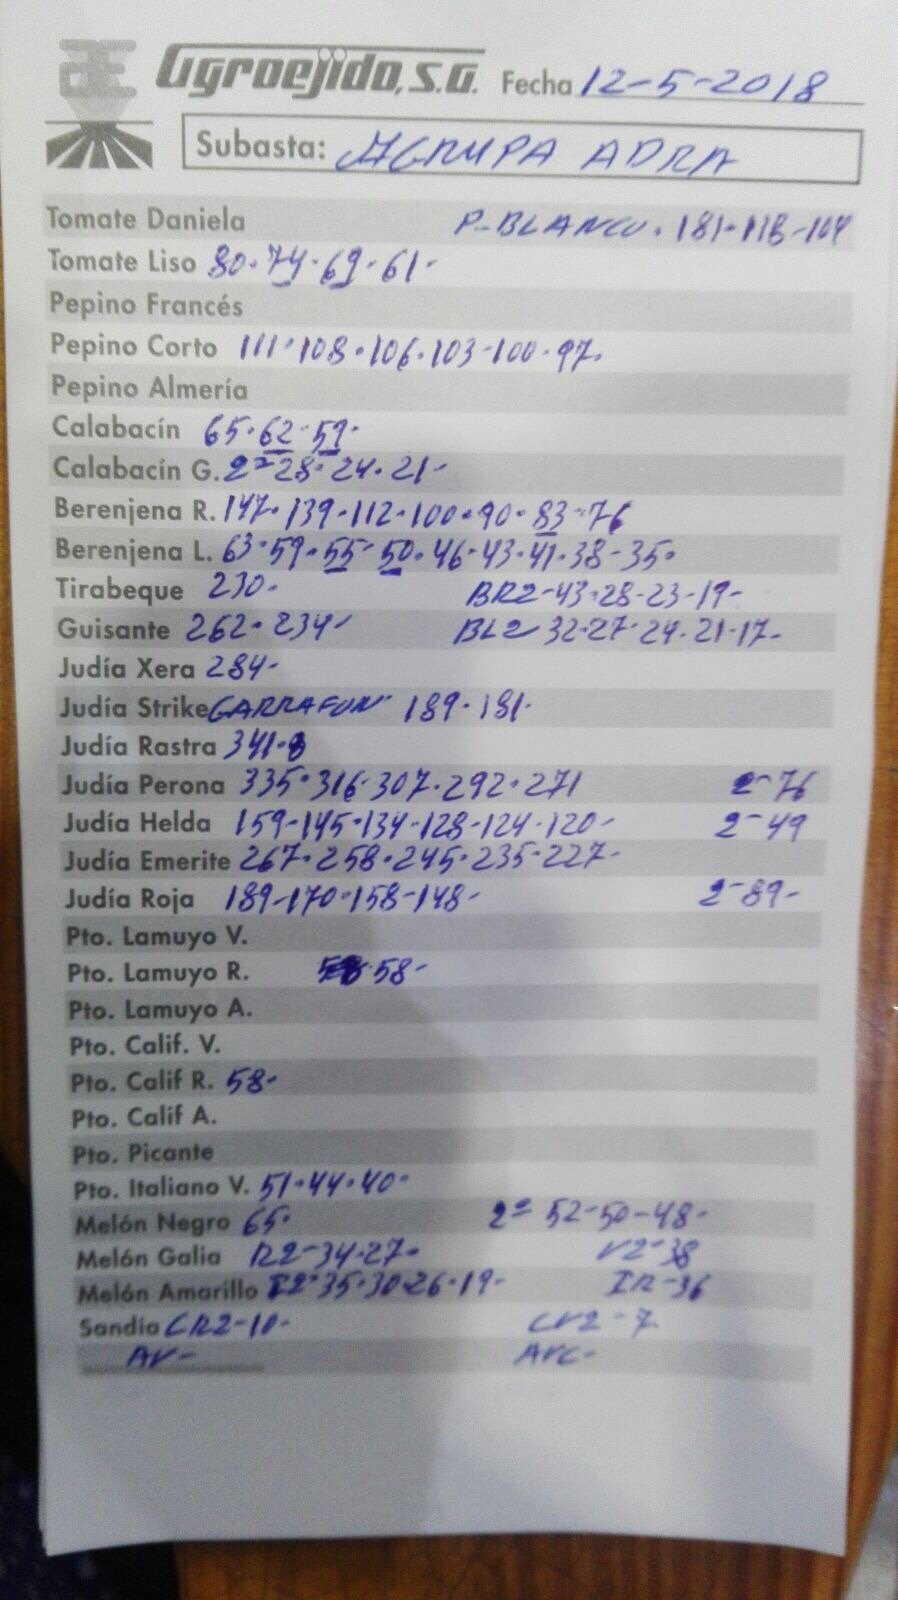 Agroejido, S.A. Fecha 12-5-2018
Subasta: AGRUPA ADRA
Tomate Daniela P-BLANCO. 181-118-104
Tomate Liso 80-74-69-61-
Pepino Francés
Pepino Corto 111-108-106-103-100-97-
Pepino Almería
Calabacín 65-62-59-
Calabacín G. 2ª 28-24-21-
Berenjena R. 147-139-112-100-90-83-76
Berenjena L. 63-59-55-50-46-43-41-38-35-
Tirabeque 230- BR2-43-28-23-19-
Guisante 262-234- BL2 32-27-24-21-17-
Judía Xera 284-
Judía Strike GARRAFON 189-181-
Judía Rastra 341-
Judía Perona 335-316-307-292-271 2-76
Judía Helda 159-145-134-128-124-120- 2-49
Judía Emerite 267-258-245-235-227-
Judía Roja 189-170-158-148- 2-89-
Pto. Lamuyo V.
Pto. Lamuyo R. 58-
Pto. Lamuyo A.
Pto. Calif. V.
Pto. Calif R. 58-
Pto. Calif A.
Pto. Picante
Pto. Italiano V. 51-44-40-
Melón Negro 65- 2ª 52-50-48-
Melón Galia R2-34-27- V2-38
Melón Amarillo I2-35-30-26-19- IR-36
Sandía CR2-10- CV2-7
AV- AVC-